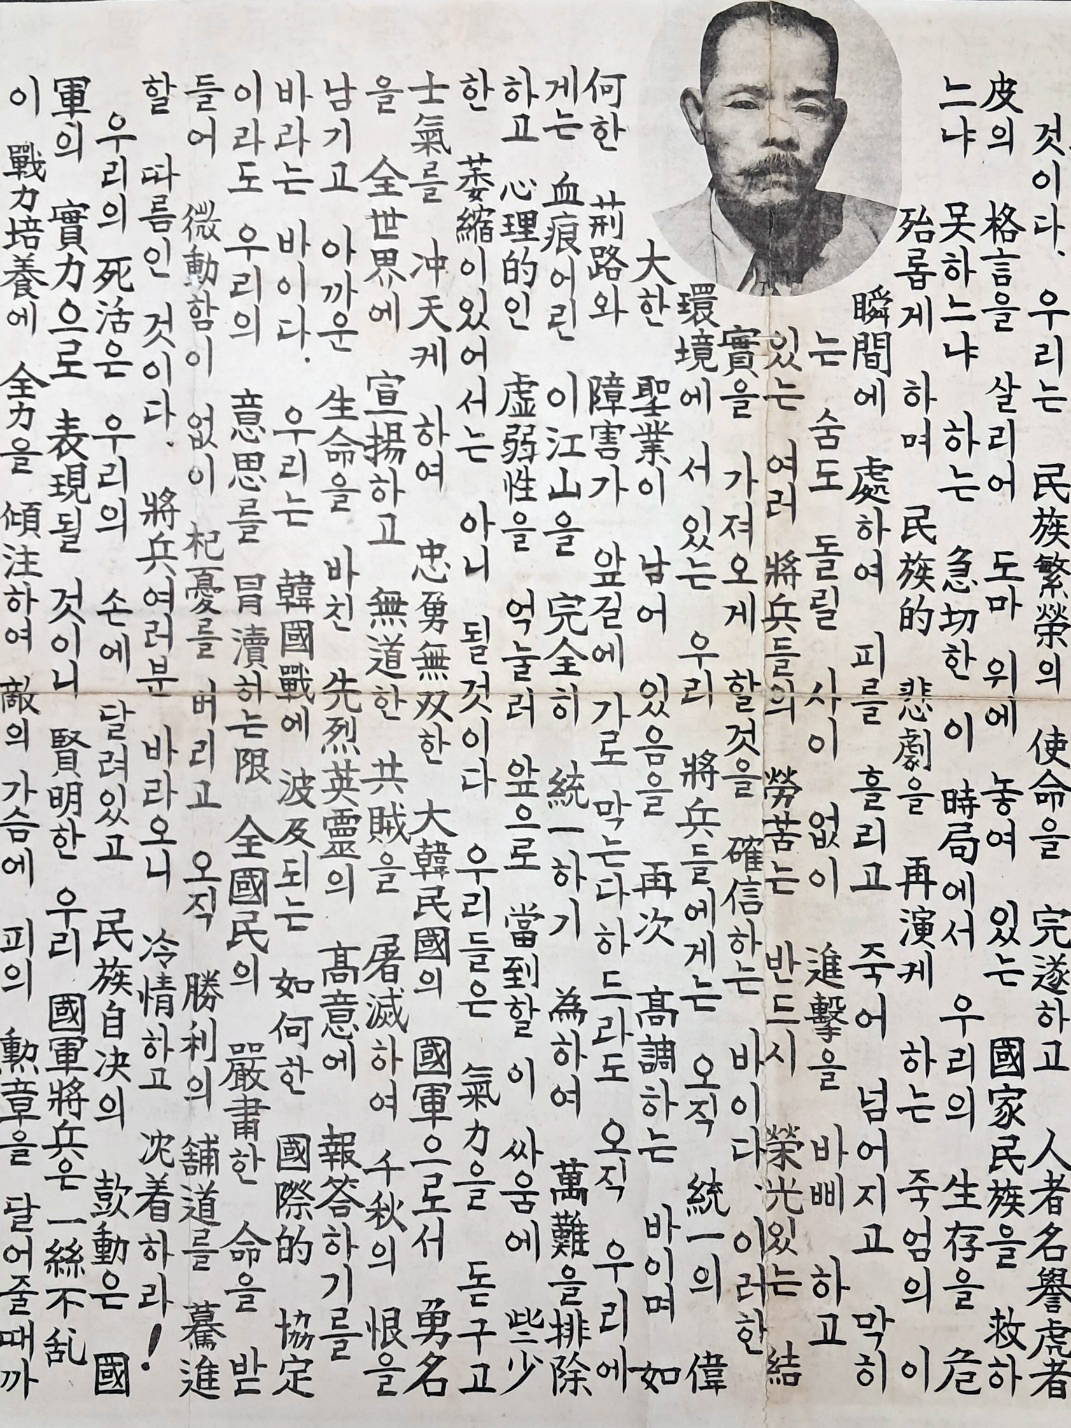 것이다. 우리는 民族繁榮의 使命을 完遂하고 人者名譽虎者
皮의 格言을 살리어 도마 위에 놓여 있는 國家民族을 救하
느냐 못하느냐 하는 急切한 이 時局에서 우리의 生存을 危
殆롭게 하며 民族的 悲劇을 再演케 하는 죽엄의 이
瞬間에 處하여 피를 흘리고 죽어 넘어지고 막히
는 숨도 돌릴 사이 없이 進擊을 바삐 하고
있는 여러 將兵들의 勞苦는 반드시 榮光있는 結
實을 가져오게 할것을 確信하는 바이다. 이러한
環境에 서 있는 우리 將兵들에게는 오직 統一의 偉
大한 聖業이 남어 있음을 再次 高調하는 바이며 如
何한 荊路와 障害가 앞길에 가로 막는다 하드라도 오직 우리에
게는 血痕어린 이江山을 完全히 統一하기 為하여 萬難을排除
하고 心理的인 虛弱性을 억눌러 앞으로 當到할 이 싸움에 些少
한 萎縮이있어서는 아니 될것이다 우리들은 氣力을 돋구고
士氣를 冲天케 하여 忠勇無双한 大韓民國의 國軍으로서 勇名
을 全世界에 宣揚하고 無道한 共賊을 屠滅하여 千秋의 恨을
남기고 아까운 生命을 바친 先烈英靈의 髙意에 報答하기를
바라는 바이다. 우리는 韓國戰에 波及되는 如何한 國際的 協定
이라도 우리의 意思를 冒瀆하는限 全國民의 嚴肅한 命을 받
들어 微動함이 없이 杞憂를 버리고 오직 勝利의 舖道를 驀進
할 따름인 것이다. 將兵여러분 바라오니 冷情하고 沈着하라!
우리의 死活은 우리의 손에 달려있고 民族自决의 鼓動은 國
軍의 實力으로 表現될 것이니 賢明한 우리 國軍將兵은 一絲不乱
이 戰力培養에 全力을 傾注하여 敵의 가슴에 피의 勳章을 달어줄때까